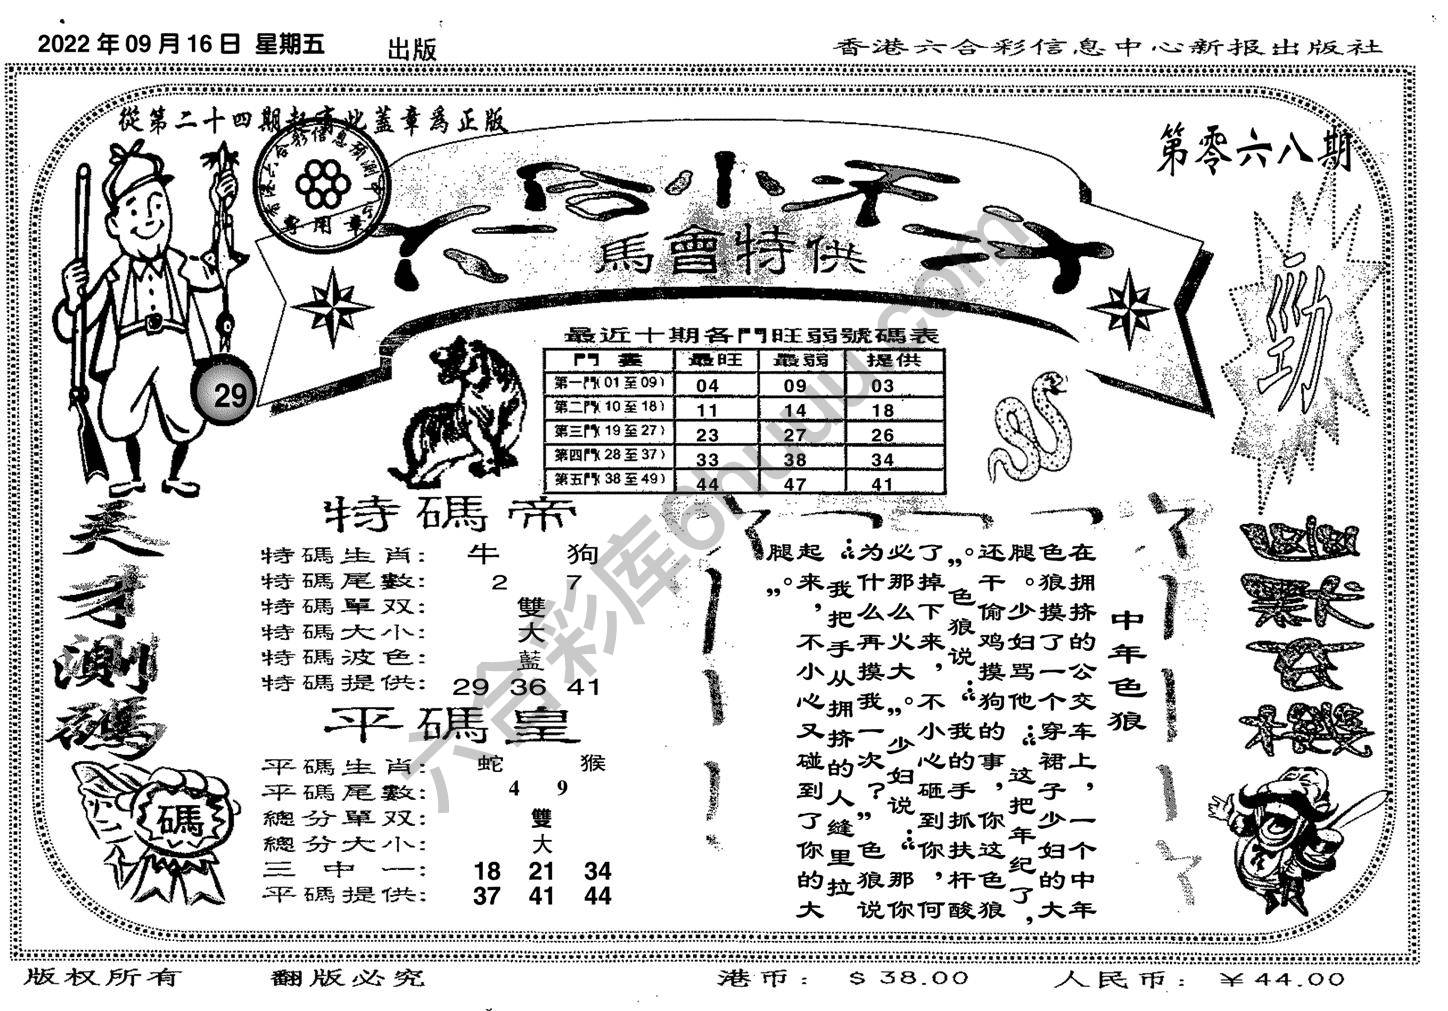 2022 年 09 月 16 日 星期五 出版
香港六合彩信息中心新报出版社
從第二十四期起有此蓋章爲正版
第零六八期
專用章
馬會特供
勁
29
最近十期各門旺弱號碼表
門 最旺 最弱 提供
第一門(01至09) 04 09 03
第二門(10至18) 11 14 18
第三門(19至27) 23 27 26
第四門(28至37) 33 38 34
第五門(38至49) 44 47 41
天才測碼
特碼帝
特碼生肖: 牛 狗
特碼尾數: 2 7
特碼單双: 雙
特碼大小: 大
特碼波色: 藍
特碼提供: 29 36 41
平碼皇
平碼生肖: 蛇 猴
平碼尾數: 4 9
總分單双: 雙
總分大小: 大
三中一: 18 21 34
平碼提供: 37 41 44
碼
中年色狼
在拥挤的公交车上，一个中年
色狼摸了一个穿裙子少妇的大
腿。少妇骂他：“这把年纪了，
还干偷鸡摸狗的事，你这色狼
。”色狼说：“我的手抓扶杆酸
了掉下来，不小心砸到你，何
必那么火大。”少妇说：“那你
为什么再摸我一次？”色狼说
：“我把手从拥挤的人缝里拉
起来，不小心又碰到了你的大
腿。”
六合彩库6huuu.com
版权所有 翻版必究 港币: $ 38.00 人民币: ￥44.00